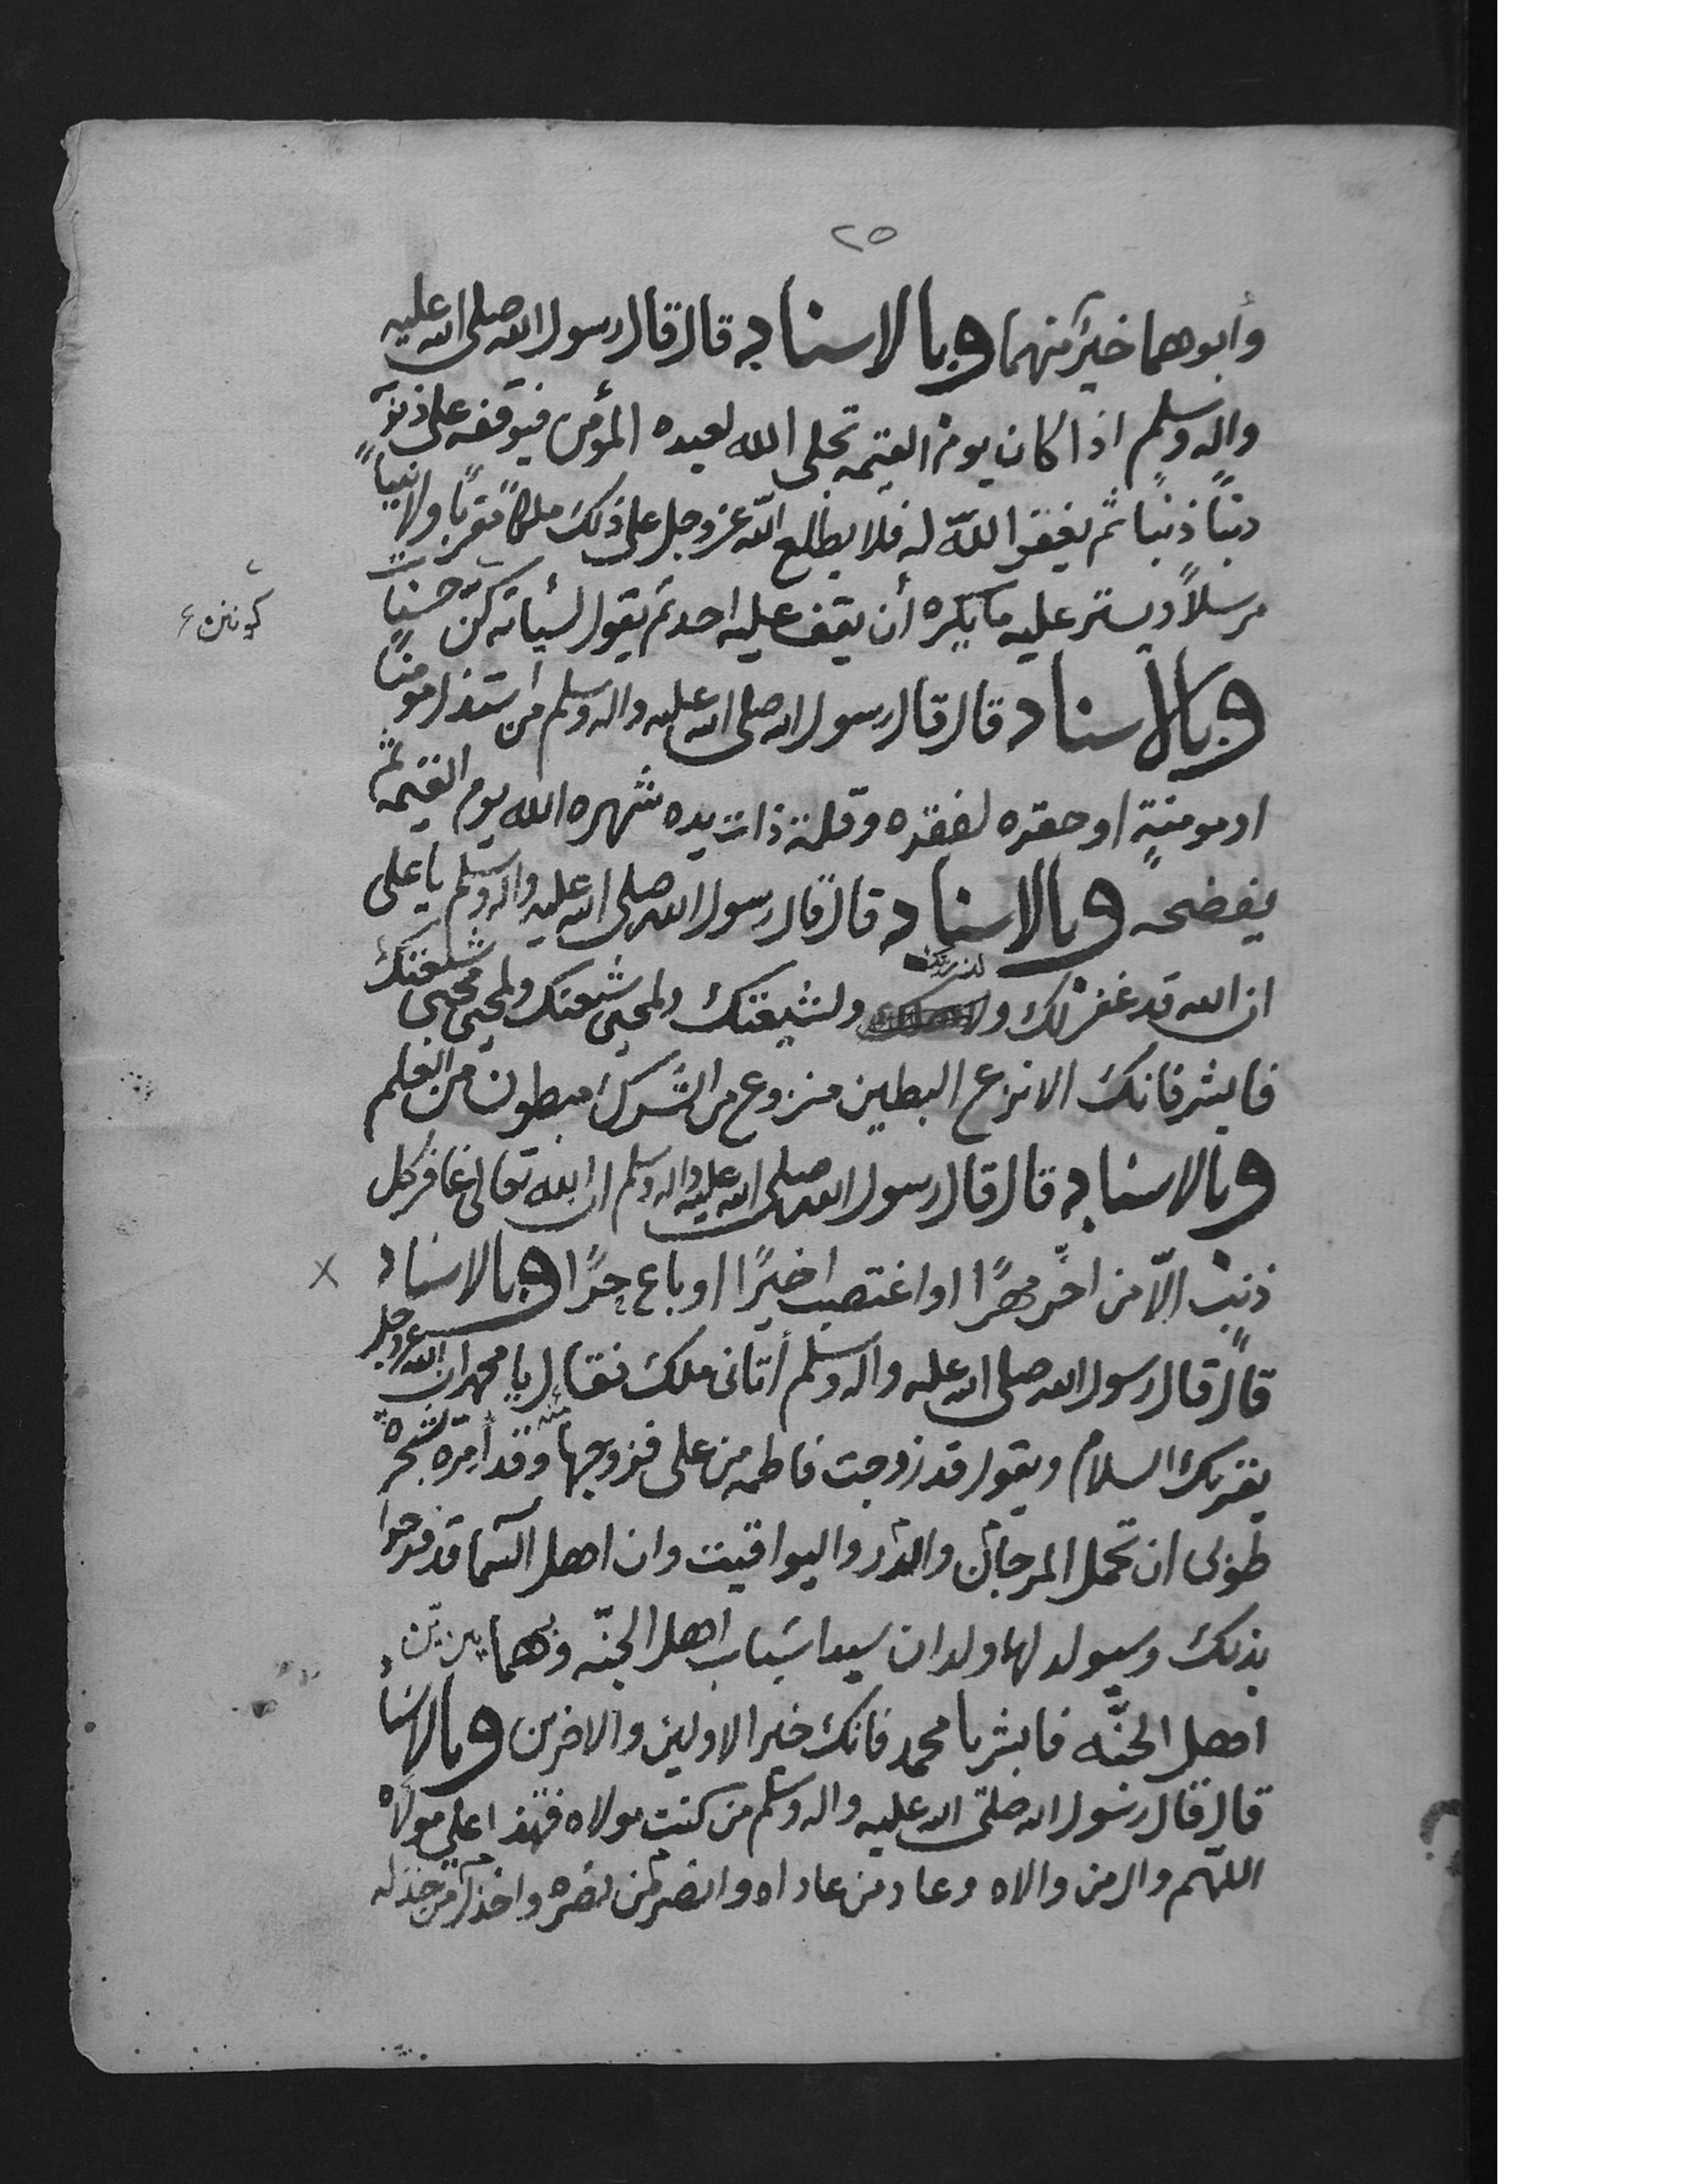 ٢٥
وأبوهما خيرٌ منهما وبالاسناد قال قال رسول الله صلى الله عليه
واله وسلم اذا كان يوم القيمه تجلى الله لعبده المؤمن فيوقفه على ذنوبه
ذنبًا ذنبًا ثم يغفر الله له فلا يطلع الله عز وجل على ذلك ملكًا مقربًا ولا نبيًا
مرسلاً ويستر عليه ما يكره أن يقف عليه احد ثم يقول لسيأته كن حسنات
كونى
وبالاسناد قال قال رسول الله صلى الله عليه واله وسلم من استذل مومنًا
او مومنةٍ او حقره لفقره وقلة ذات يده شهره الله يوم القيمه ثم
يفضحه وبالاسناد قال قال رسول الله صلى الله عليه واله وسلم يا على
ان الله قد غفر لك ولشيعتك ولمحبى شيعتك ولمحبى محبى شيعتك
فابشر فانك الانزع البطين منزوع من الشرك مبطون من العلم
وبالاسناد قال قال رسول الله صلى الله عليه واله وسلم ان الله تعالى غافر كل
ذنب الّا من اخّر مهرًا او اغتصب اخيرًا او باع حرًا وبالاسناد
قال قال رسول الله صلى الله عليه واله وسلم أتانى ملك فقال يا محمد ان الله عز وجل
يقريك السلام ويقول قد زوجت فاطمه من على فزوجها منه وقد امرة شجرة
طوبى ان تحمل المرجان والدر واليواقيت وان اهل السما قد فرحوا
بذلك وسيولد لها ولدان سيدا شباب اهل الجنّه وبهما يزين
اهل الجنّه فابشر يا محمد فانك خير الاولين والاخرين وبالاسناد
قال قال رسول الله صلّى الله عليه واله وسلم من كنت مولاه فهذا على مولاه
اللهم وال من والاه وعاد من عاداه وانصر من نصره واخذل من خذله